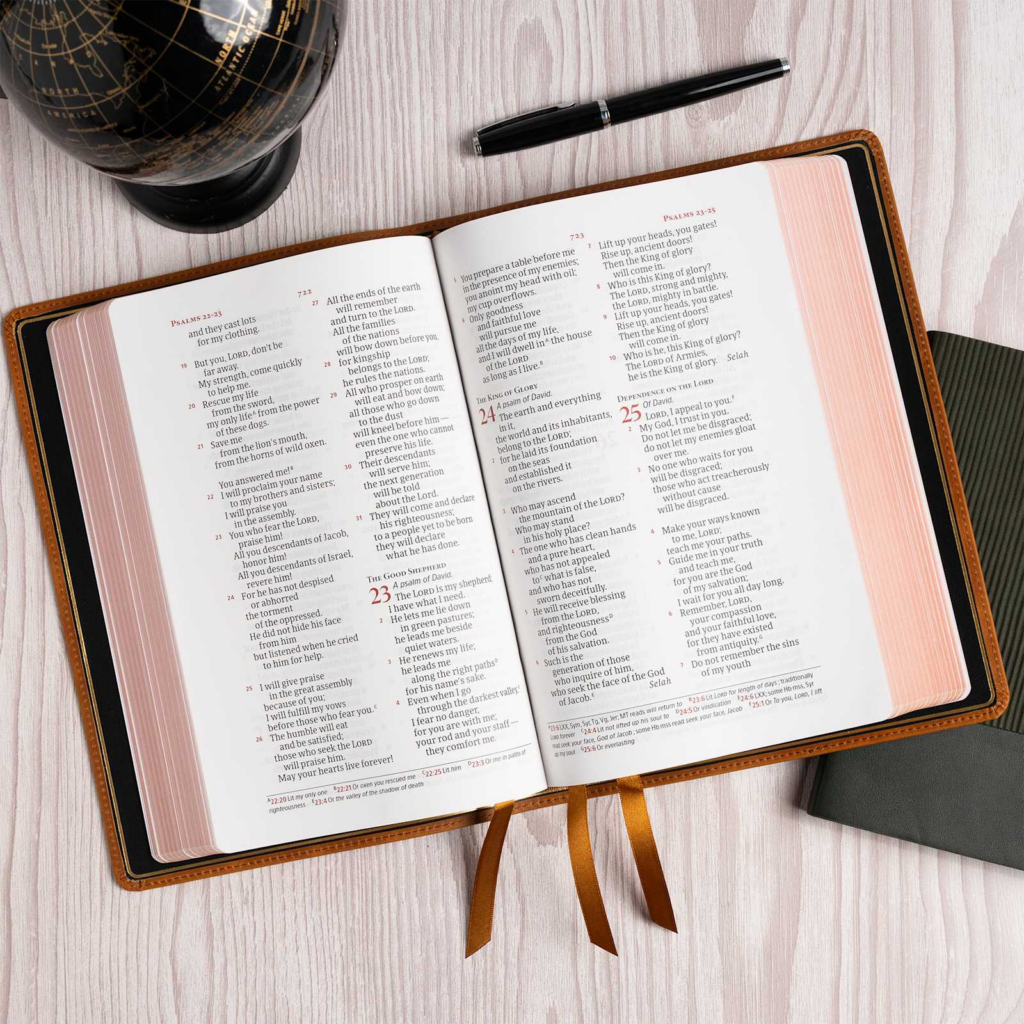 NORTH
ATLANTIC OCEAN
NORTH
AMERICA
Psalms 22–23
722
and they cast lots
for my clothing.
19 But you, LORD, don't be
far away.
My strength, come quickly
to help me.
20 Rescue my life
from the sword,
my only life A from the power
of these dogs.
21 Save me
from the lion's mouth,
from the horns of wild oxen.
You answered me! B
22 I will proclaim your name
to my brothers and sisters;
I will praise you
in the assembly.
23 You who fear the LORD,
praise him!
All you descendants of Jacob,
honor him!
All you descendants of Israel,
revere him!
24 For he has not despised
or abhorred
the torment
of the oppressed.
He did not hide his face
from him
but listened when he cried
to him for help.
25 I will give praise
in the great assembly
because of you;
I will fulfill my vows
before those who fear you. C
26 The humble will eat
and be satisfied;
those who seek the LORD
will praise him.
May your hearts live forever!
27 All the ends of the earth
will remember
and turn to the LORD.
All the families
of the nations
will bow down before you,
28 for kingship
belongs to the LORD;
he rules the nations.
29 All who prosper on earth
will eat and bow down;
all those who go down
to the dust
will kneel before him —
even the one who cannot
preserve his life.
30 Their descendants
will serve him;
the next generation
will be told
about the Lord.
31 They will come and declare
his righteousness;
to a people yet to be born
they will declare
what he has done.
The Good Shepherd
23 A psalm of David.
The LORD is my shepherd;
I have what I need.
2 He lets me lie down
in green pastures;
he leads me beside
quiet waters.
3 He renews my life;
he leads me
along the right paths D
for his name's sake.
4 Even when I go
through the darkest valley, E
I fear no danger,
for you are with me;
your rod and your staff —
they comfort me.
A 22:20 Lit my only one B 22:21 Or oxen you rescued me C 22:25 Lit him D 23:3 Or me in paths of
righteousness E 23:4 Or the valley of the shadow of death
723
Psalms 23–25
5 You prepare a table before me
in the presence of my enemies;
you anoint my head with oil;
my cup overflows.
6 Only goodness
and faithful love
will pursue me
all the days of my life,
and I will dwell in A the house
of the LORD
as long as I live. B
The King of Glory
24 A psalm of David.
The earth and everything
in it,
the world and its inhabitants,
belong to the LORD;
2 for he laid its foundation
on the seas
and established it
on the rivers.
3 Who may ascend
the mountain of the LORD?
Who may stand
in his holy place?
4 The one who has clean hands
and a pure heart,
who has not appealed
to C what is false,
and who has not
sworn deceitfully.
5 He will receive blessing
from the LORD,
and righteousness D
from the God
of his salvation.
6 Such is the
generation of those
who inquire of him,
who seek the face of the God
of Jacob. E Selah
7 Lift up your heads, you gates!
Rise up, ancient doors!
Then the King of glory
will come in.
8 Who is this King of glory?
The LORD, strong and mighty,
the LORD, mighty in battle.
9 Lift up your heads, you gates!
Rise up, ancient doors!
Then the King of glory
will come in.
10 Who is he, this King of glory?
The LORD of Armies,
he is the King of glory. Selah
Dependence on the Lord
25 Of David.
LORD, I appeal to you. F
2 My God, I trust in you.
Do not let me be disgraced;
do not let my enemies gloat
over me.
3 No one who waits for you
will be disgraced;
those who act treacherously
without cause
will be disgraced.
4 Make your ways known
to me, LORD;
teach me your paths.
5 Guide me in your truth
and teach me,
for you are the God
of my salvation;
I wait for you all day long.
6 Remember, LORD,
your compassion
and your faithful love,
for they have existed
from antiquity. G
7 Do not remember the sins
of my youth
A 23:6 LXX, Sym, Syr, Tg, Vg, Jer; MT reads will return to B 23:6 Lit LORD for length of days; traditionally
LORD forever C 24:4 Lit not lifted up his soul to D 24:5 Or vindication E 24:6 LXX; some Hb mss, Syr
read seek your face, God of Jacob; some Hb mss read seek your face, Jacob F 25:1 Or To you, LORD, I lift
up my soul G 25:6 Or everlasting